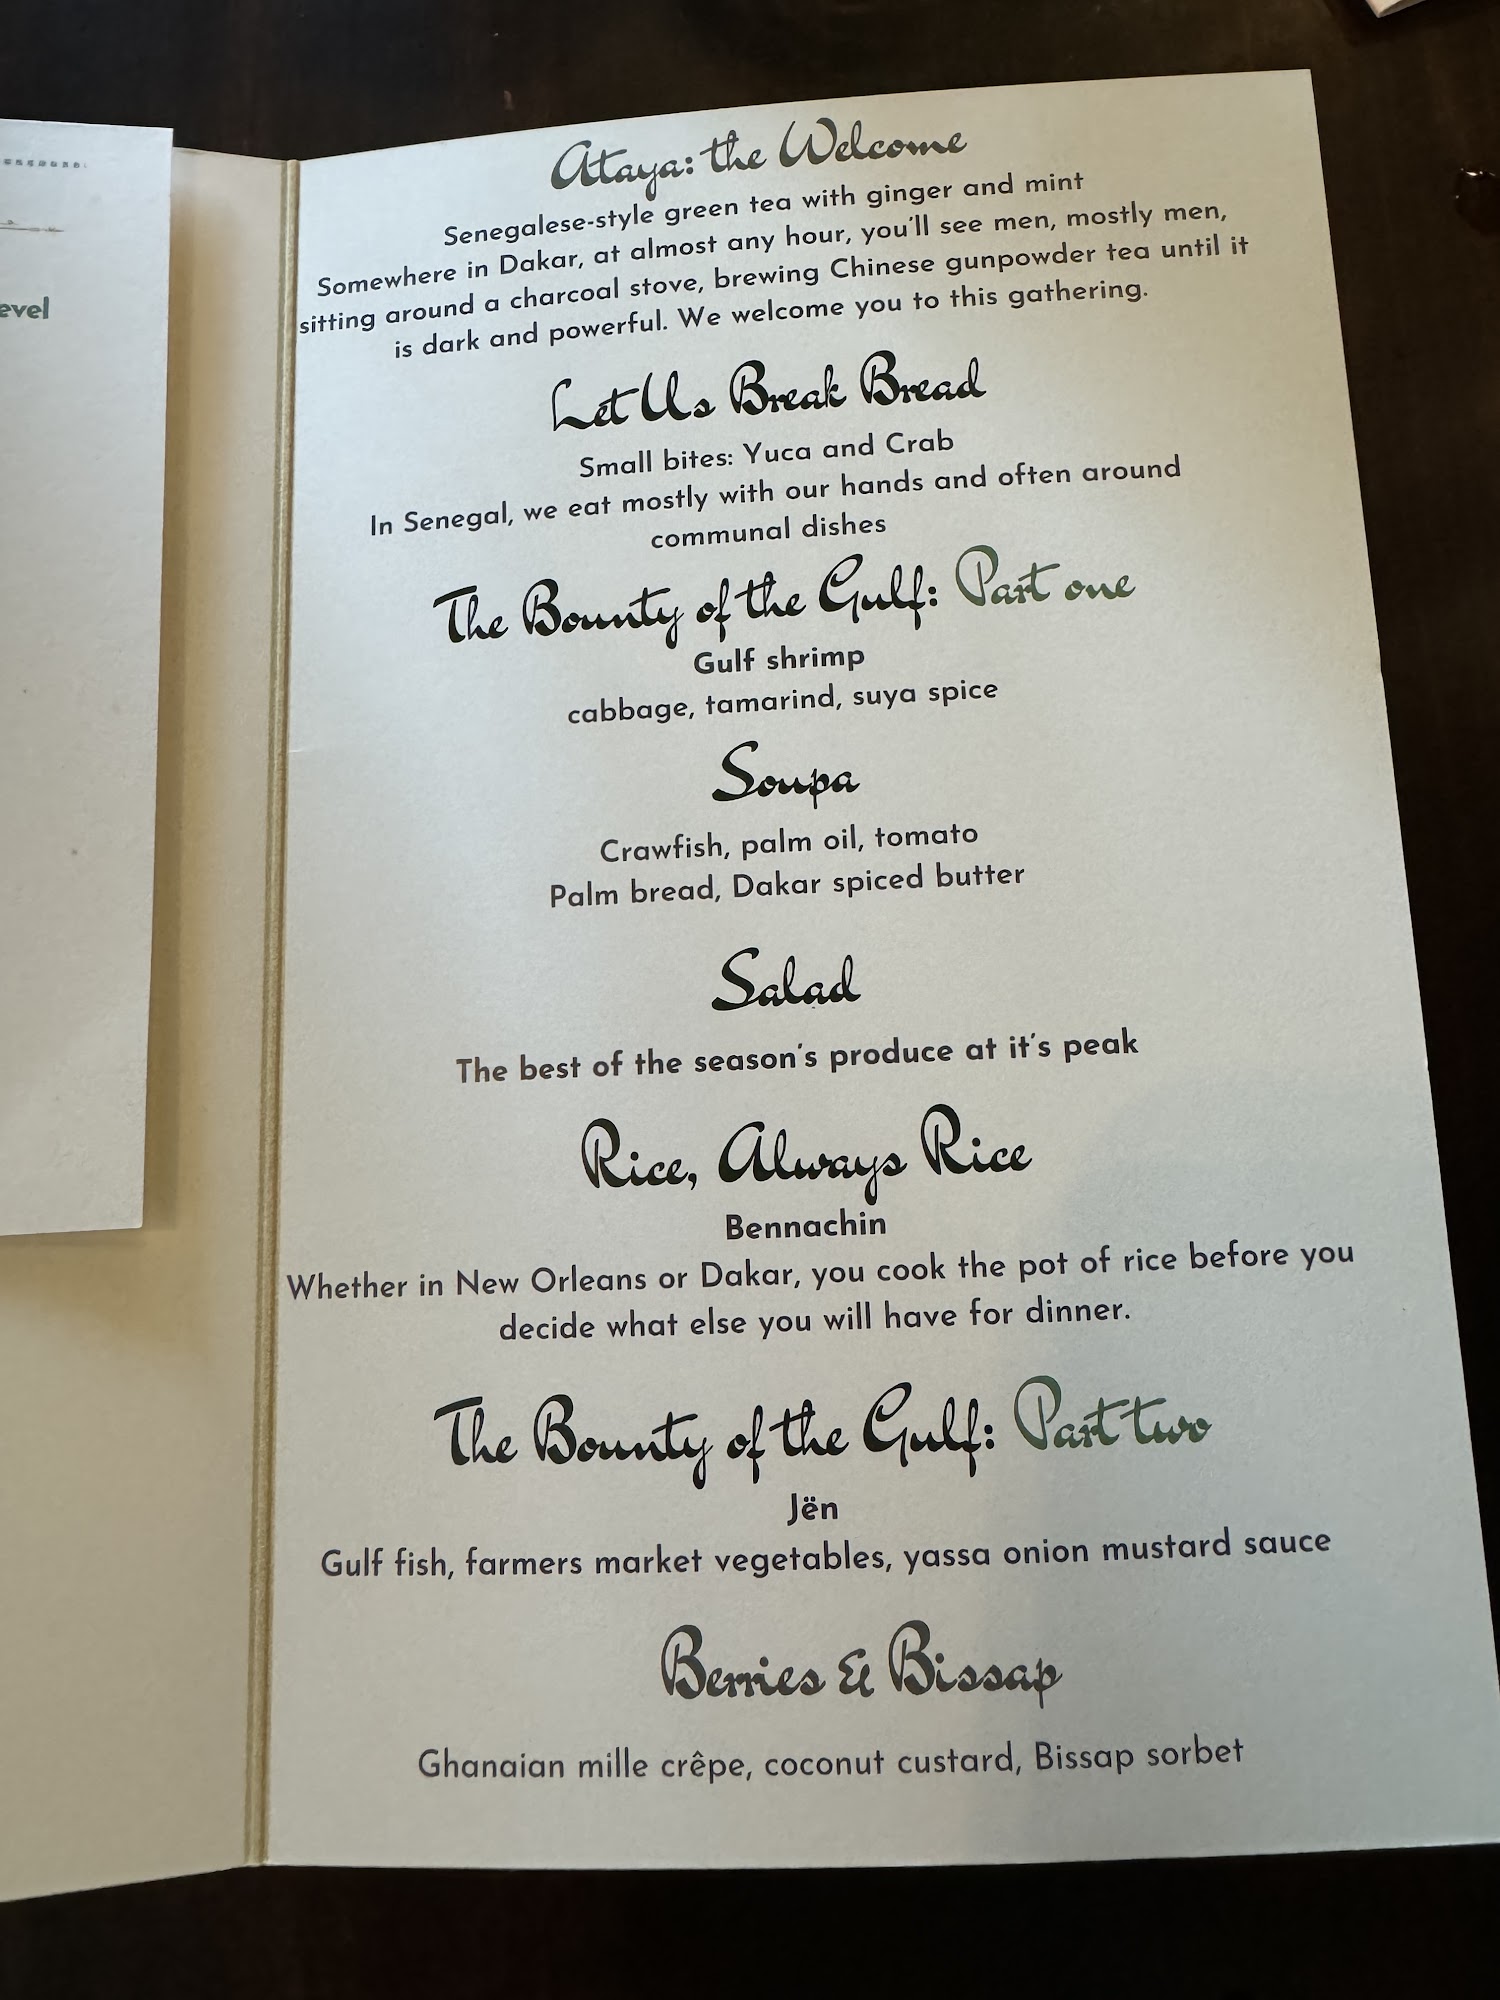 evel
Ataya: the Welcome
Senegalese-style green tea with ginger and mint
Somewhere in Dakar, at almost any hour, you'll see men, mostly men,
sitting around a charcoal stove, brewing Chinese gunpowder tea until it
is dark and powerful. We welcome you to this gathering.
Let Us Break Bread
Small bites: Yuca and Crab
In Senegal, we eat mostly with our hands and often around
communal dishes
The Bounty of the Gulf: Part one
Gulf shrimp
cabbage, tamarind, suya spice
Soupa
Crawfish, palm oil, tomato
Palm bread, Dakar spiced butter
Salad
The best of the season's produce at it's peak
Rice, Always Rice
Bennachin
Whether in New Orleans or Dakar, you cook the pot of rice before you
decide what else you will have for dinner.
The Bounty of the Gulf: Part two
Jën
Gulf fish, farmers market vegetables, yassa onion mustard sauce
Berries & Bissap
Ghanaian mille crêpe, coconut custard, Bissap sorbet